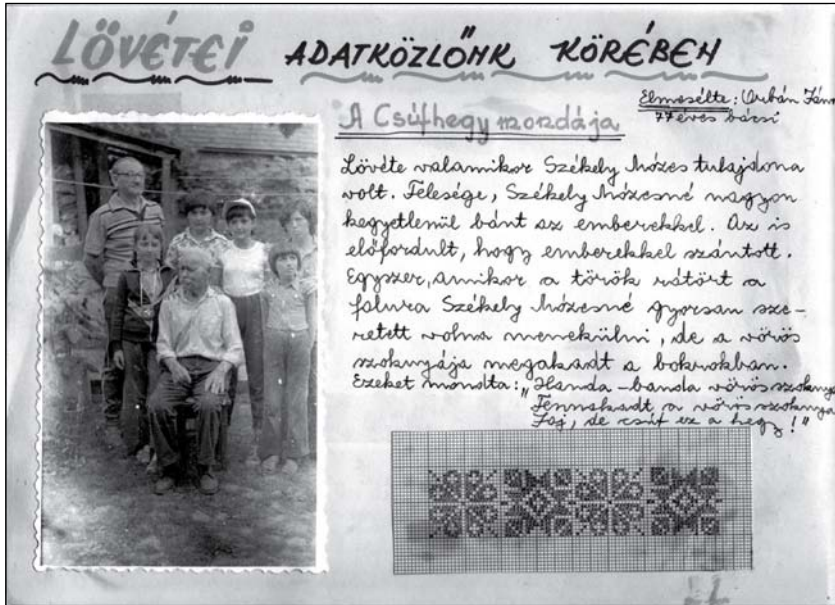 LÖVÉTEI ADATKÖZLŐNK KÖRÉBEN
Elmesélte: Orbán
77 éves bácsi
A Csúfhegy mondája
Lövéte valamikor Székely Mózes tulajdona
volt. Felesége, Székely Mózesné nagyon
kegyetlenül bánt az emberekkel. Az is
előfordult, hogy emberekkel szántott.
Egyszer, amikor a török rátört a
falura Székely Mózesné gyorsan sze-
retett volna menekülni, de a vörös
szoknyája megakadt a bokrokban.
Ezeket mondta: "Handa-banda vörös szoknya
Fennakadt a vörös szoknya
Jaj, de csúf ez a hegy!"